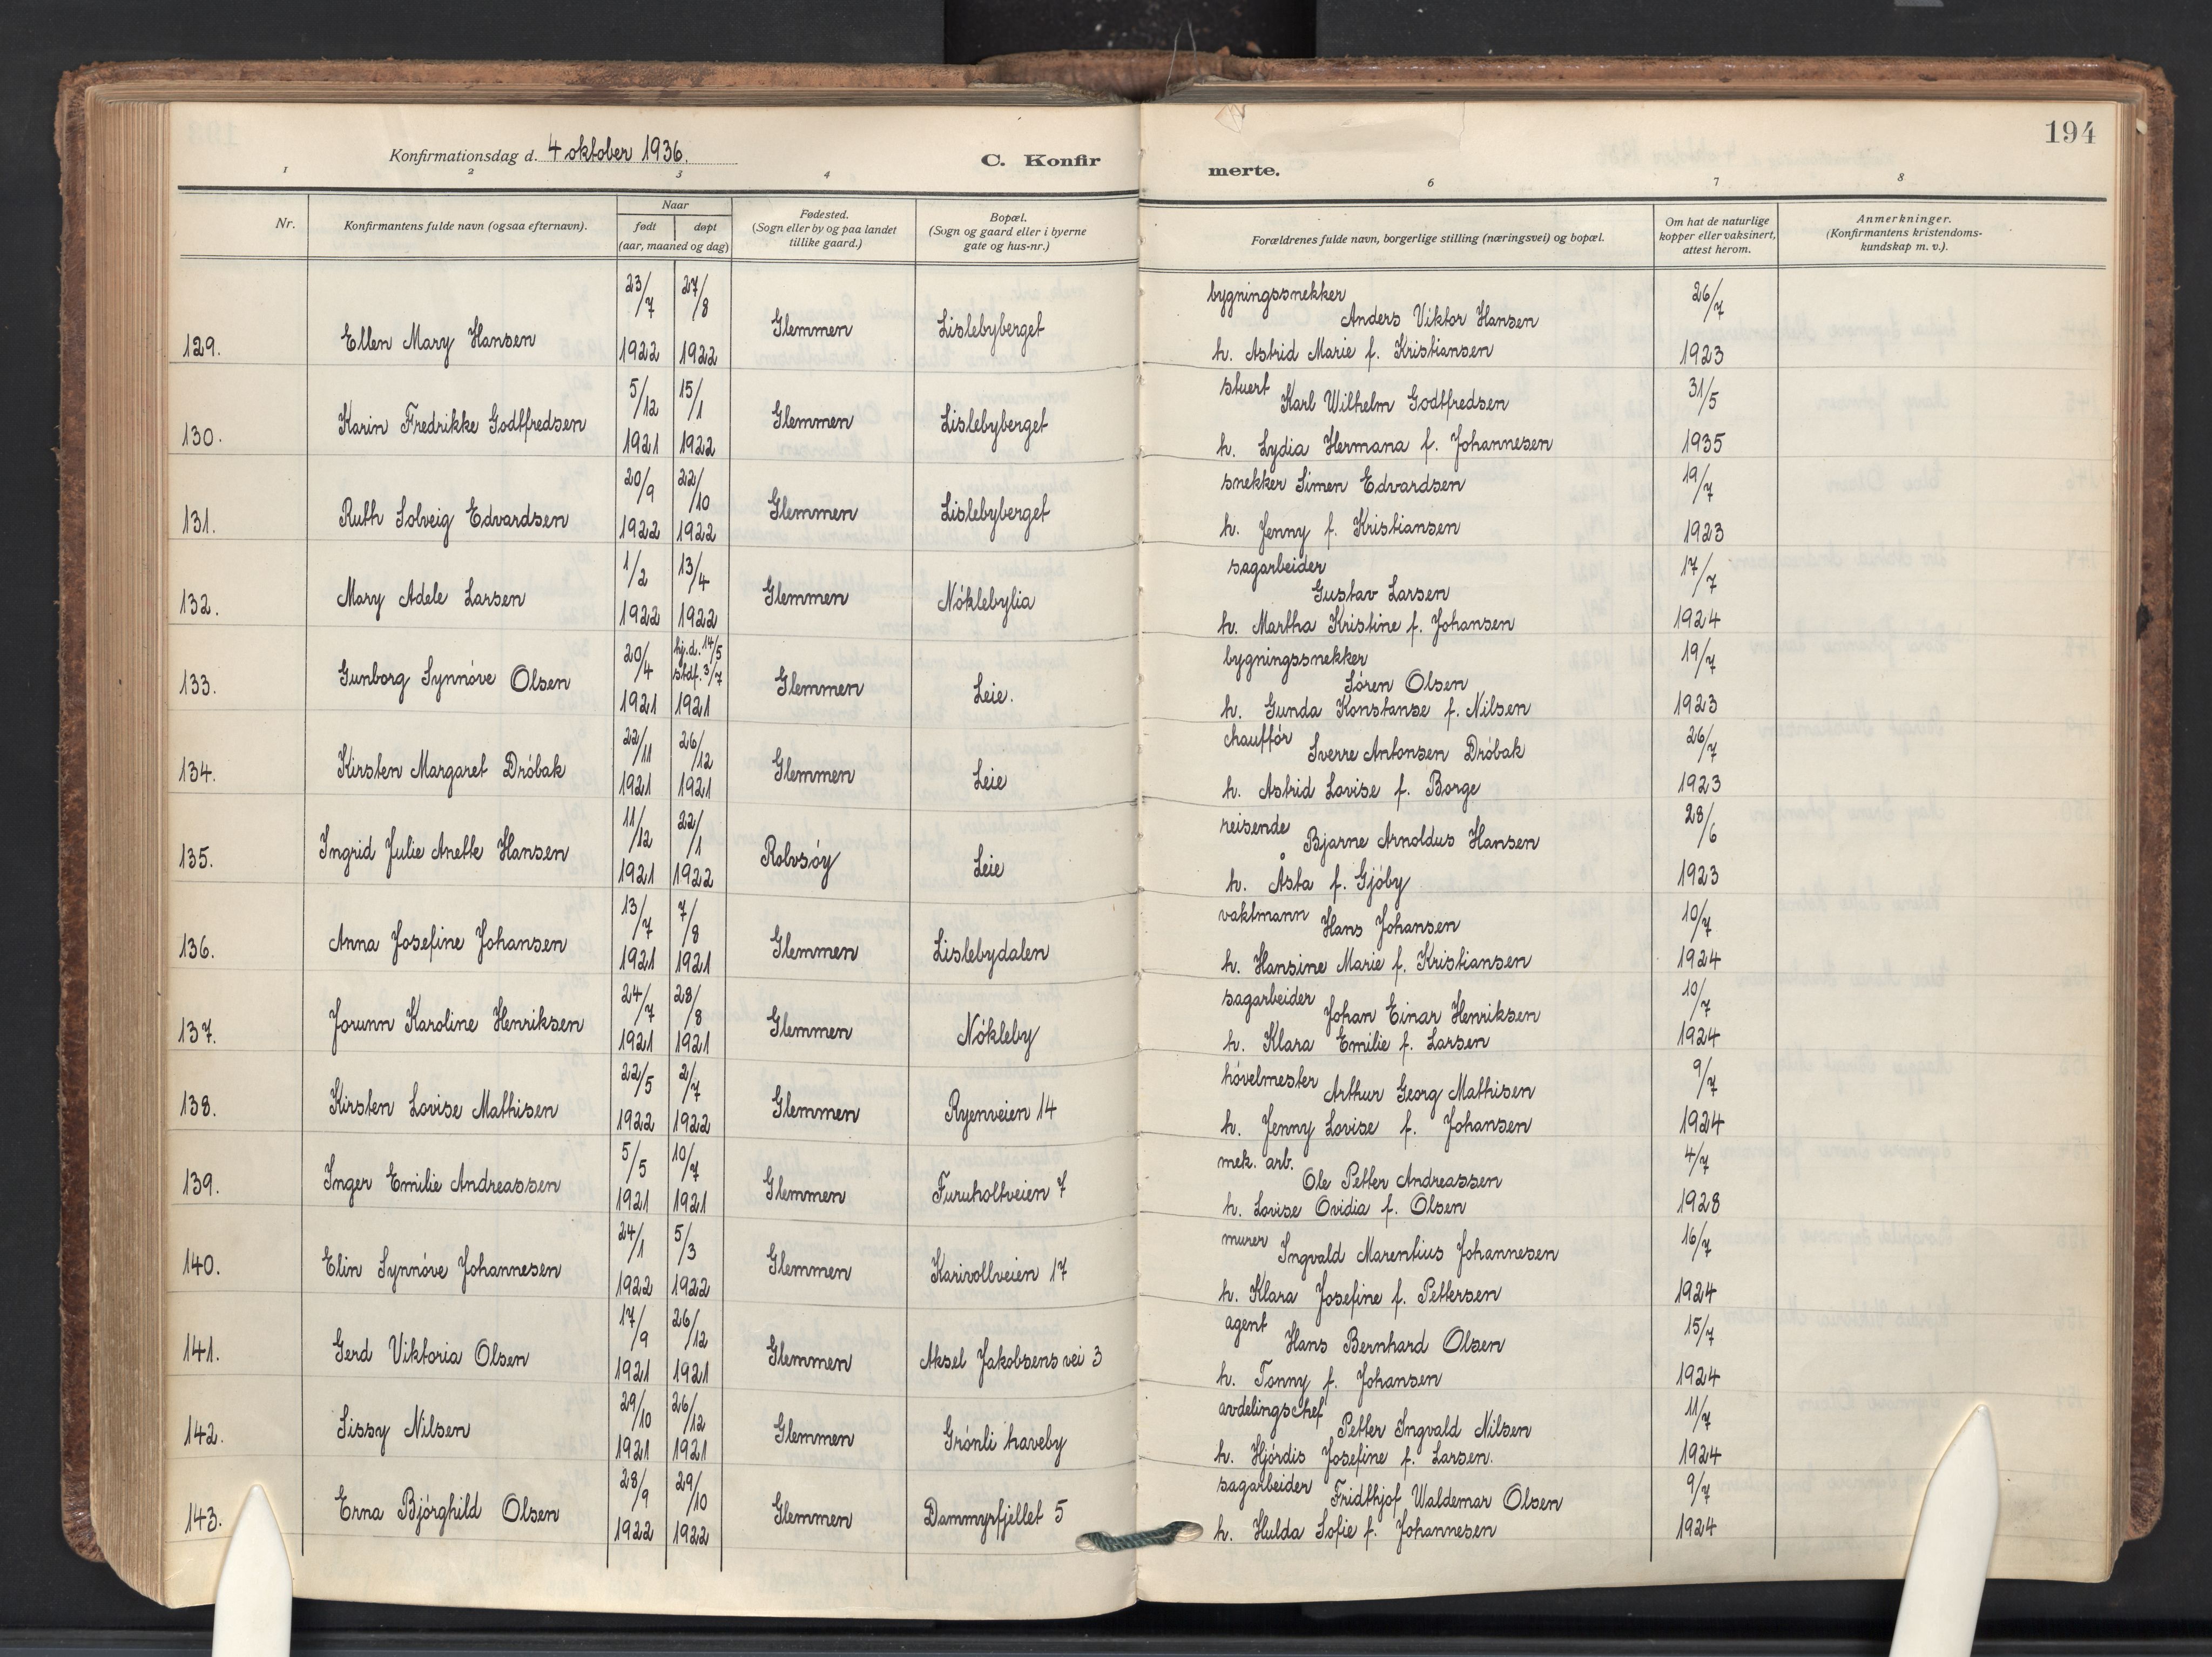 194
Konfirmationsdag d. 4 oktober 1936.
C. Konfirmerte.
1 2 3 4 6 7 8
Nr. | Konfirmantens fulde navn (ogsaa efternavn). | Naar født døpt (aar, maaned og dag) | Fødested. (Sogn eller by og paa landet tillike gaard.) | Bopæl. (Sogn og gaard eller i byerne gate og hus-nr.) | Forældrenes fulde navn, borgerlige stilling (næringsvei) og bopæl. | Om hat de naturlige kopper eller vaksinert, attest herom. | Anmerkninger. (Konfirmantens kristendoms-kundskap m. v.).
129. Ellen Mary Hansen | 23/7 1922 | 27/8 1922 | Glemmen | Lislebyberget | bygningssnekker Anders Viktor Hansen h. Astrid Marie f. Kristiansen | 26/7 1923
130. Karin Fredrikke Godtfredsen | 5/12 1921 | 15/1 1922 | Glemmen | Lislebyberget | stuert Karl Wilhelm Godtfredsen h. Lydia Hermana f. Johannesen | 31/5 1935
131. Ruth Solveig Edvardsen | 20/9 1922 | 22/10 1922 | Glemmen | Lislebyberget | snekker Simen Edvardsen h. Jenny f. Kristiansen | 19/7 1923
132. Mary Adele Larsen | 1/2 1922 | 13/4 1922 | Glemmen | Nóklebylia | sagarbeider Gustav Larsen h. Martha Kristine f. Johansen | 17/7 1924
133. Gunborg Synnóve Olsen | 20/4 1921 | hj.d. 14/5 stdf. 3/7 1921 | Glemmen | Leie. | bygningssnekker Sóren Olsen h. Gunda Konstanse f. Nilsen | 19/7 1923
134. Kirsten Margaret Dróbak | 22/11 1921 | 26/12 1921 | Glemmen | Leie | chauffór Sverre Antonsen Dróbak h. Astrid Lovise f. Borge | 26/7 1923
135. Ingrid Julie Anette Hansen | 11/12 1921 | 22/1 1922 | Rolvsóy | Leie | reisende Bjarne Arnoldus Hansen h. Åsta f. Gjóby | 28/6 1923
136. Anna Josefine Johansen | 13/7 1921 | 7/8 1921 | Glemmen | Lislebydalen | vaktmann Hans Johansen h. Hansine Marie f. Kristiansen | 10/7 1924
137. Jorunn Karoline Henriksen | 24/7 1921 | 28/8 1921 | Glemmen | Nókleby | sagarbeider Johan Einar Henriksen h. Klara Emilie f. Larsen | 10/7 1924
138. Kirsten Lovise Mathisen | 22/5 1922 | 2/7 1922 | Glemmen | Ryenveien 14 | hóvelmester Arthur Georg Mathisen h. Jenny Lovise f. Johansen | 9/7 1924
139. Inger Emilie Andreassen | 5/5 1921 | 10/7 1921 | Glemmen | Furuholtveien 7 | mek. arb. Ole Petter Andreassen h. Lovise Ovidia f. Olsen | 4/7 1928
140. Elin Synnóve Johannesen | 24/1 1922 | 5/3 1922 | Glemmen | Karivollveien 17 | murer Ingvald Marentius Johannesen h. Klara Josefine f. Pettersen | 16/7 1924
141. Gerd Viktoria Olsen | 17/9 1921 | 26/12 1921 | Glemmen | Aksel Jakobsens vei 3 | agent Hans Bernhard Olsen h. Tonny f. Johansen | 15/7 1924
142. Sissy Nilsen | 29/10 1921 | 26/12 1921 | Glemmen | Grónli haveby | avdelingschef Petter Ingvald Nilsen h. Hjórdis Josefine f. Larsen. | 11/7 1924
143. Erna Bjórghild Olsen | 28/9 1922 | 29/10 1922 | Glemmen | Dammyrfjellet 5 | sagarbeider Fridthjof Waldemar Olsen h. Hulda Sofie f. Johannesen | 9/7 1924